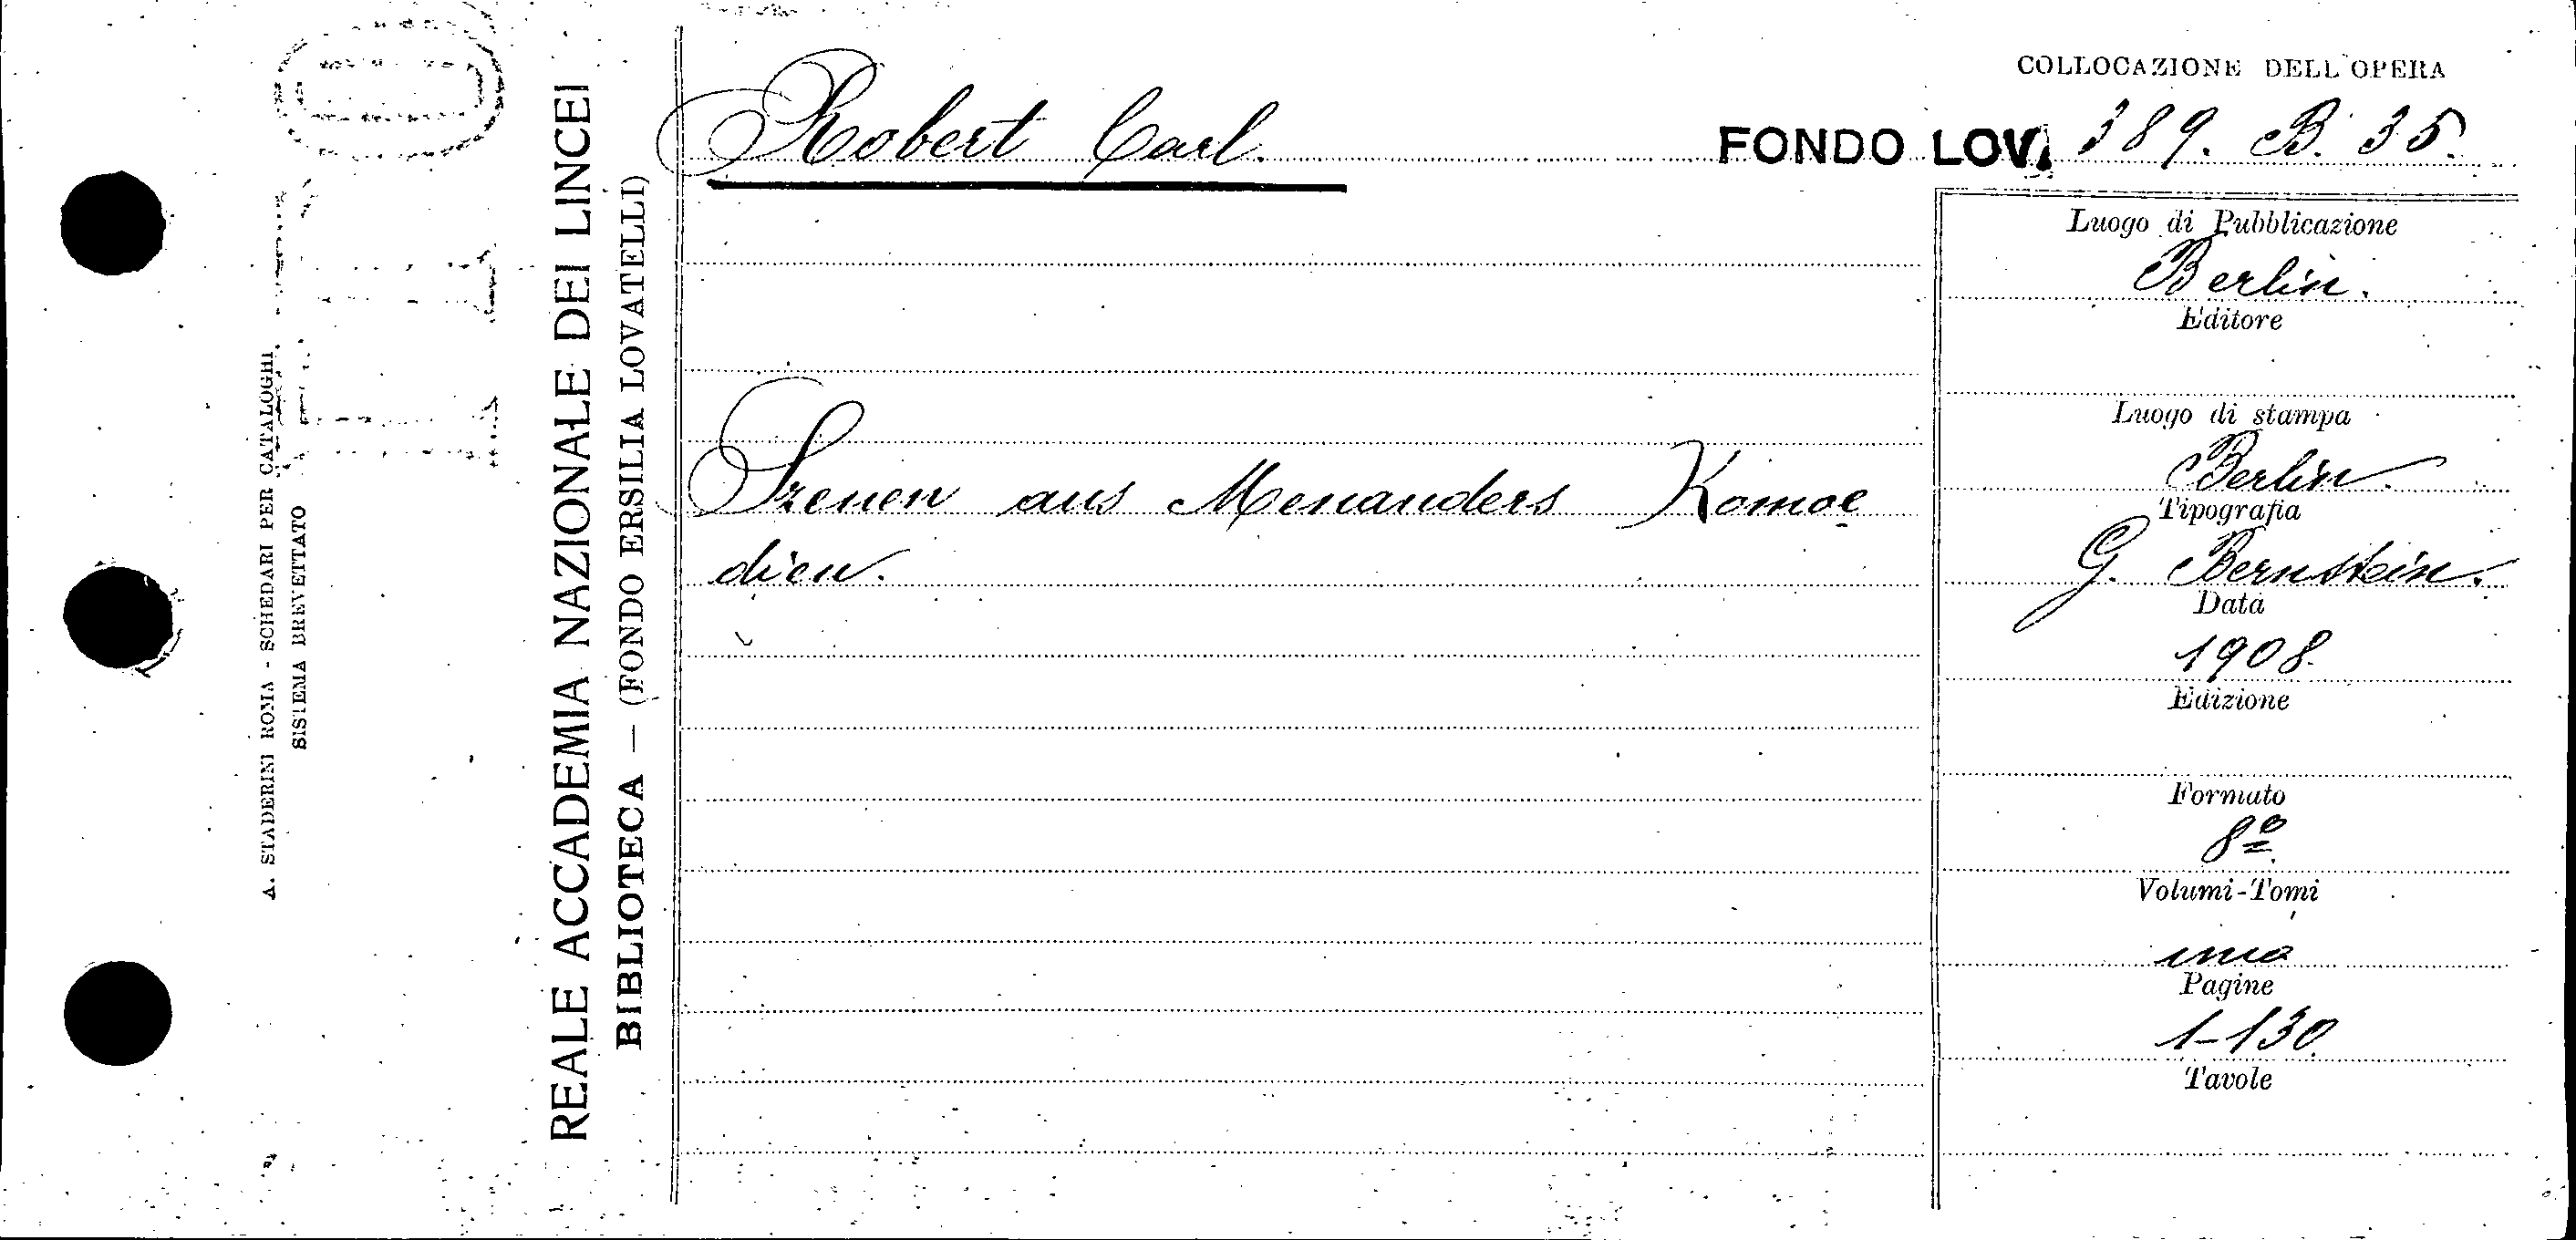 COLLOCAZIONE DELL'OPERA
Robert Carl.
FONDO LOV. 389. B. 35.
Szenen aus Menanders Komoe
dien.
Luogo di Pubblicazione
Berlin.
Editore
Luogo di stampa
Berlin.
Tipografia
G. Bernstein.
Data
1908.
Edizione
Formato
8º
Volumi-Tomi
uno
Pagine
1-130
Tavole
REALE ACCADEMIA NAZIONALE DEI LINCEI
BIBLIOTECA — (FONDO ERSILIA LOVATELLI)
A. STADERINI ROMA - SCHEDARI PER CATALOGHI
SISTEMA BREVETTATO